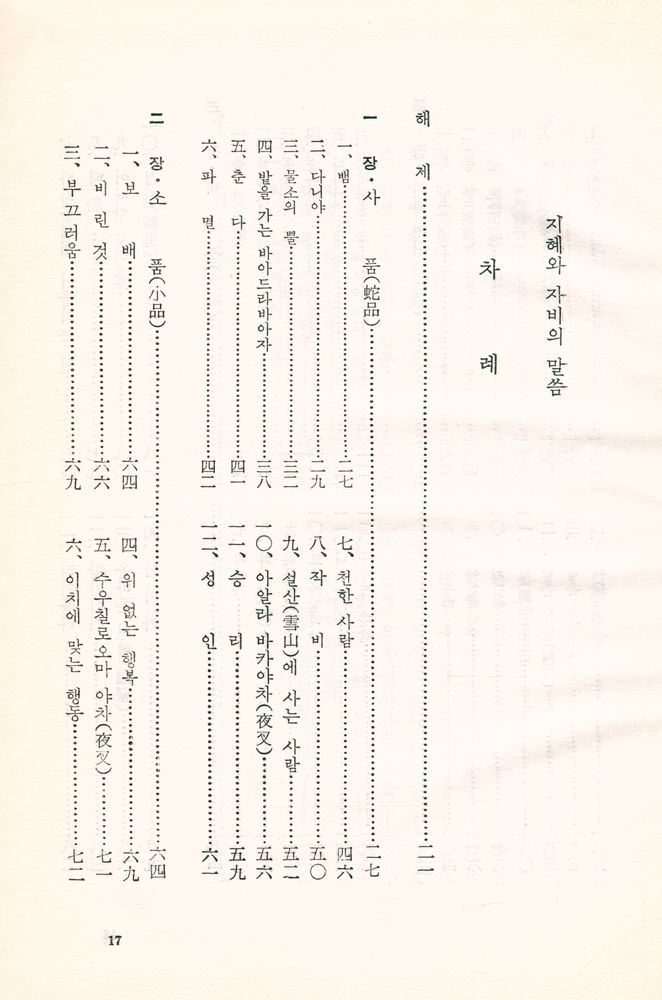 지혜와 자비의 말씀
차 례
해 제……二一
一장・사 품(蛇品)……二七
一、뱀……二七
二、다니야……二九
三、물소의 뿔……三二
四、밭을 가는 바아드라바아자……三八
五、춘 다……四一
六、파 멸……四二
七、천한 사람……四六
八、작 비……五〇
九、설산(雪山)에 사는 사람……五二
一〇、아알라바카야차(夜叉)……五六
一一、승 리……五九
一二、성 인……六一
二 장・소 품(小品)……六四
一、보 배……六四
二、비린 것……六六
三、부끄러움……六九
四、위 없는 행복……六九
五、수우칠로오마 야차(夜叉)……七一
六、이치에 맞는 행동……七二
17